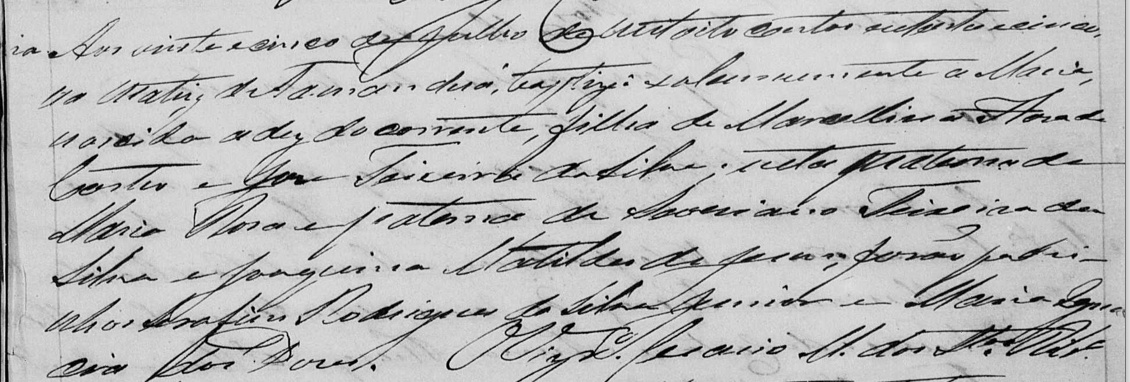 ria Aos vinte e cinco de Julho de mil oito centos e oitenta e cinco,
na Matriz de Tamanduá, baptizei solemnemente a Maria,
nascida a dez do corrente, filha de Marcellina Rosa de
Castro e José Teixeira da Silva; neta materna de
Maria Rosa e paterna de Severiano Teixeira da
Silva e Joaquina Matildes de Jesus; forão padri-
nhos Serafim Rodrigues da Silva Junior e Maria Igna-
cia das Dores. O Vigrº. Ignacio M. dos Stos.